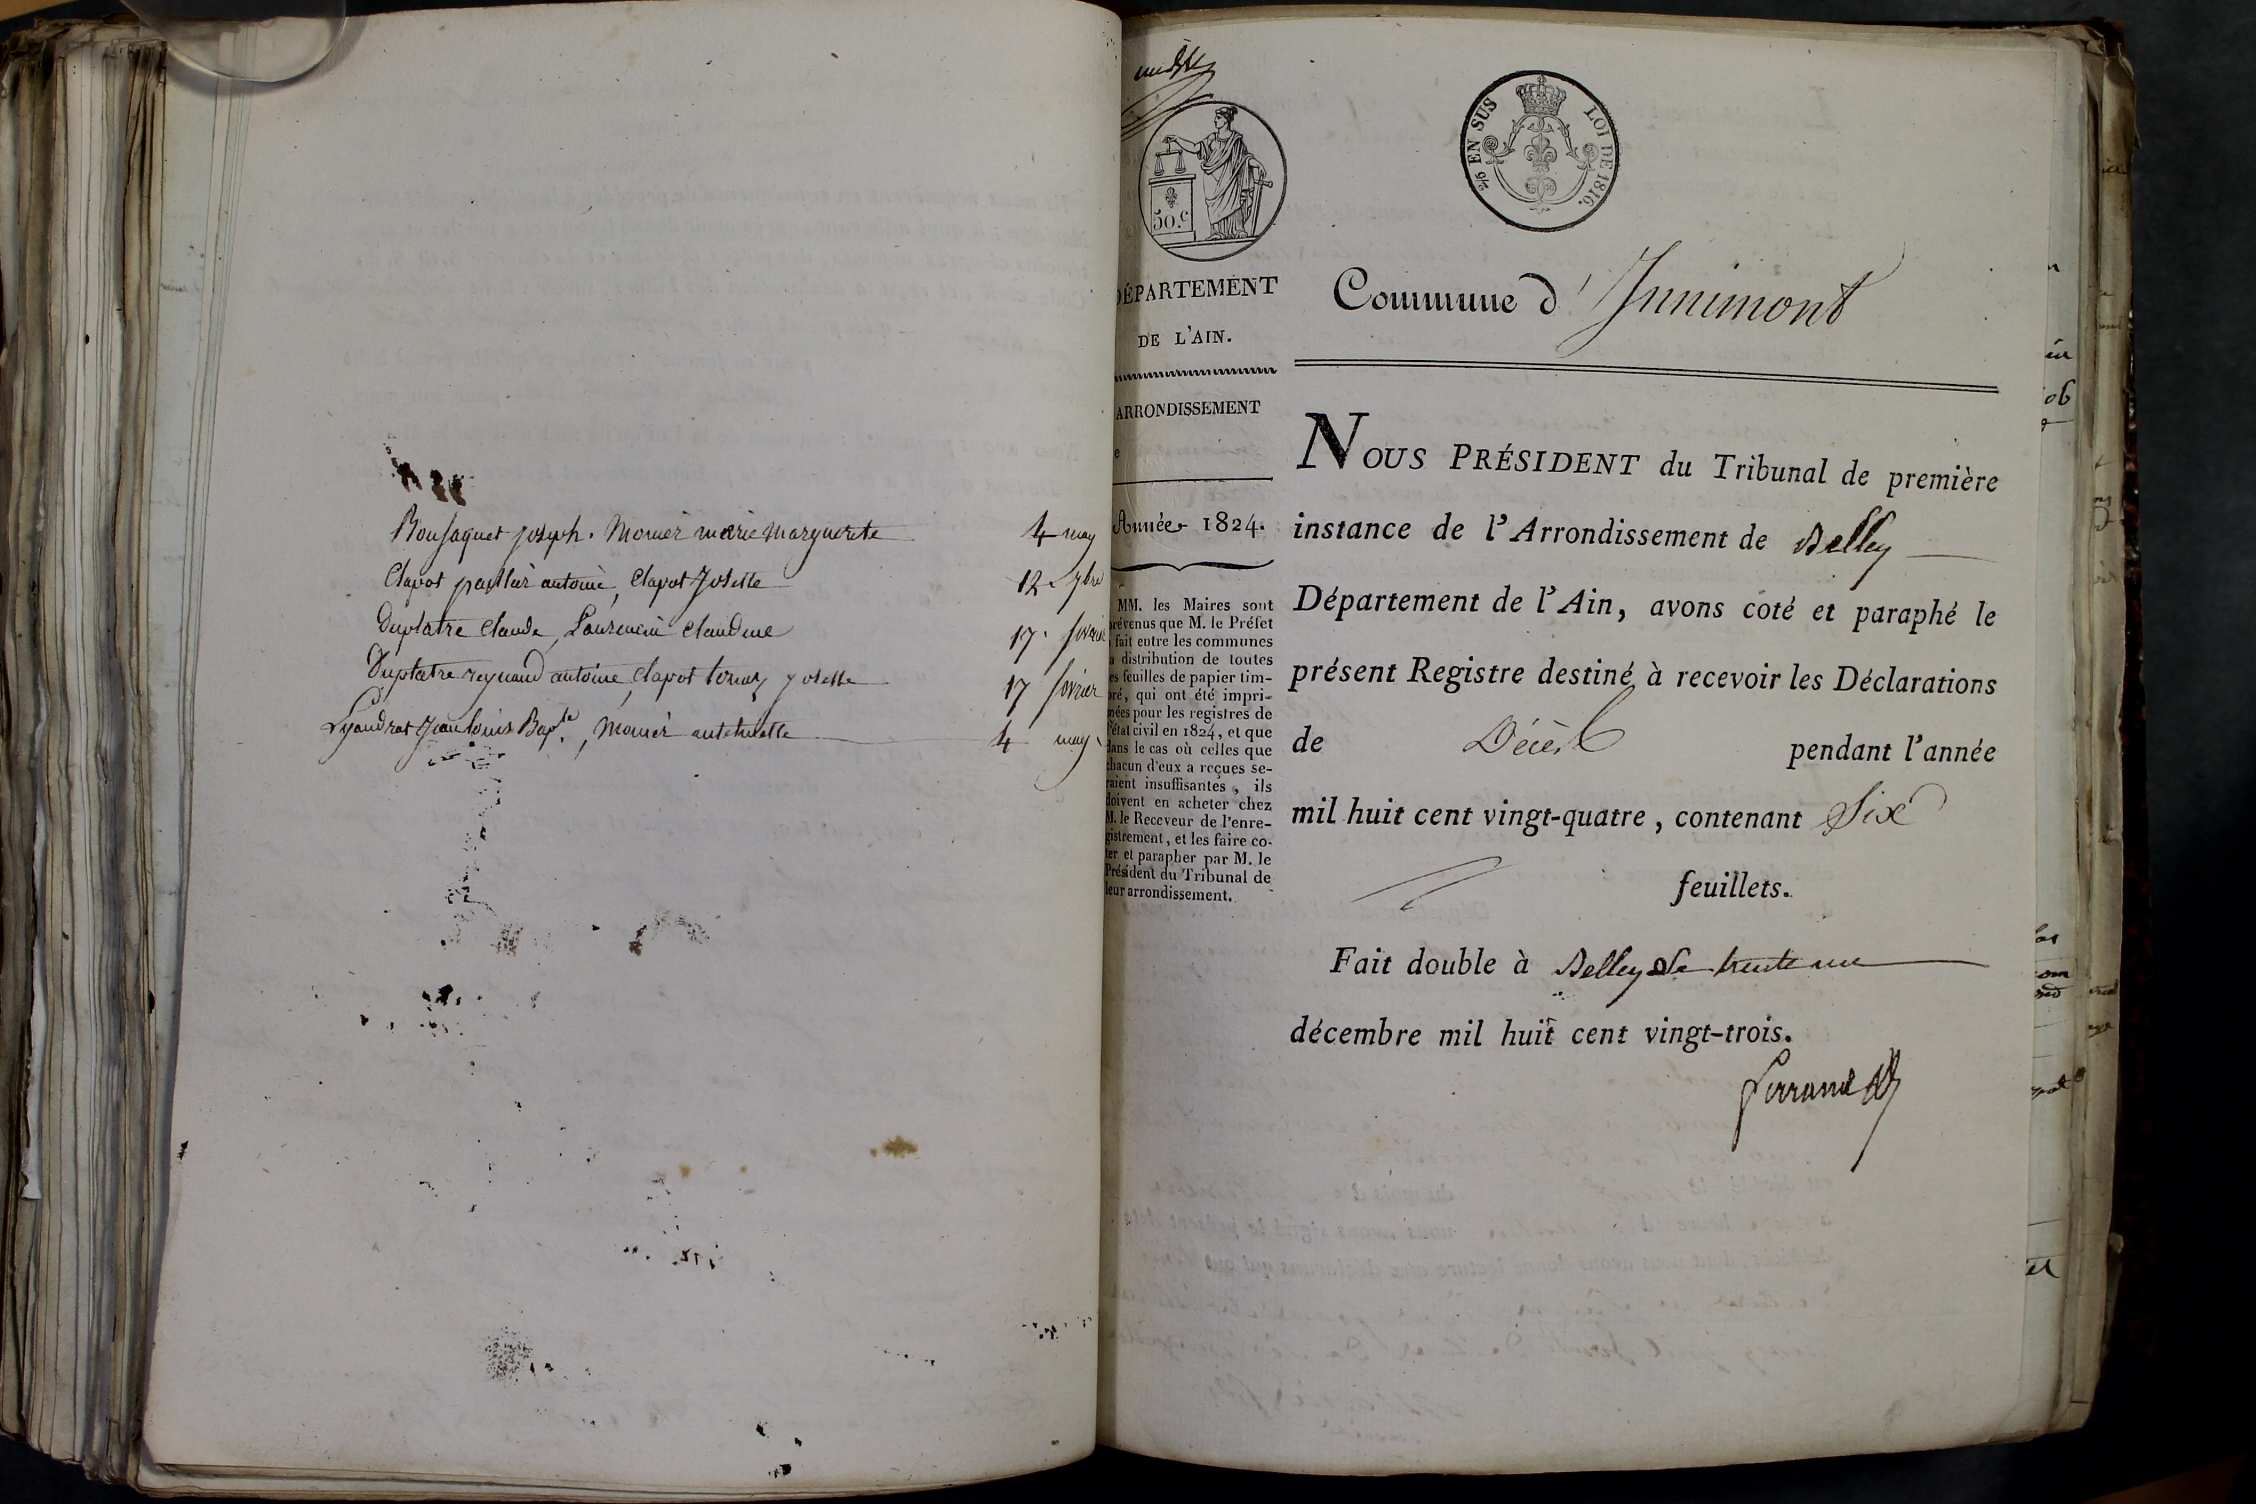 Bonsaquet joseph. Monier marie Marguerite 4 may
Clapot paillié antoine, Clapot Josette 12 7bre
Duplatre Claude, Laurencin Claudine 17. fevrier
Duplatre reynaud antoine, Clapot Josette 17 fevrier
Lyaudrat Jean louis Bapte, Monier antoinette 4 may.
50.c
2/5 EN SUS LOI DE 1816.
DÉPARTEMENT
DE L'AIN.
ARRONDISSEMENT
Année 1824.
MM. les Maires sont
prévenus que M. le Préfet
a fait entre les communes
la distribution de toutes
les feuilles de papier tim-
bré, qui ont été impri-
mées pour les registres de
l'état civil en 1824, et que
dans le cas où celles que
chacun d'eux a reçues se-
raient insuffisantes, ils
doivent en acheter chez
M. le Receveur de l'enre-
gistrement, et les faire co-
ter et parapher par M. le
Président du Tribunal de
leur arrondissement.
Commune d'Innimont
NOUS PRÉSIDENT du Tribunal de première
instance de l'Arrondissement de Belley
Département de l'Ain, avons coté et paraphé le
présent Registre destiné à recevoir les Déclarations
de Décès pendant l'année
mil huit cent vingt-quatre, contenant Six
feuillets.
Fait double à Belley le trente un
décembre mil huit cent vingt-trois.